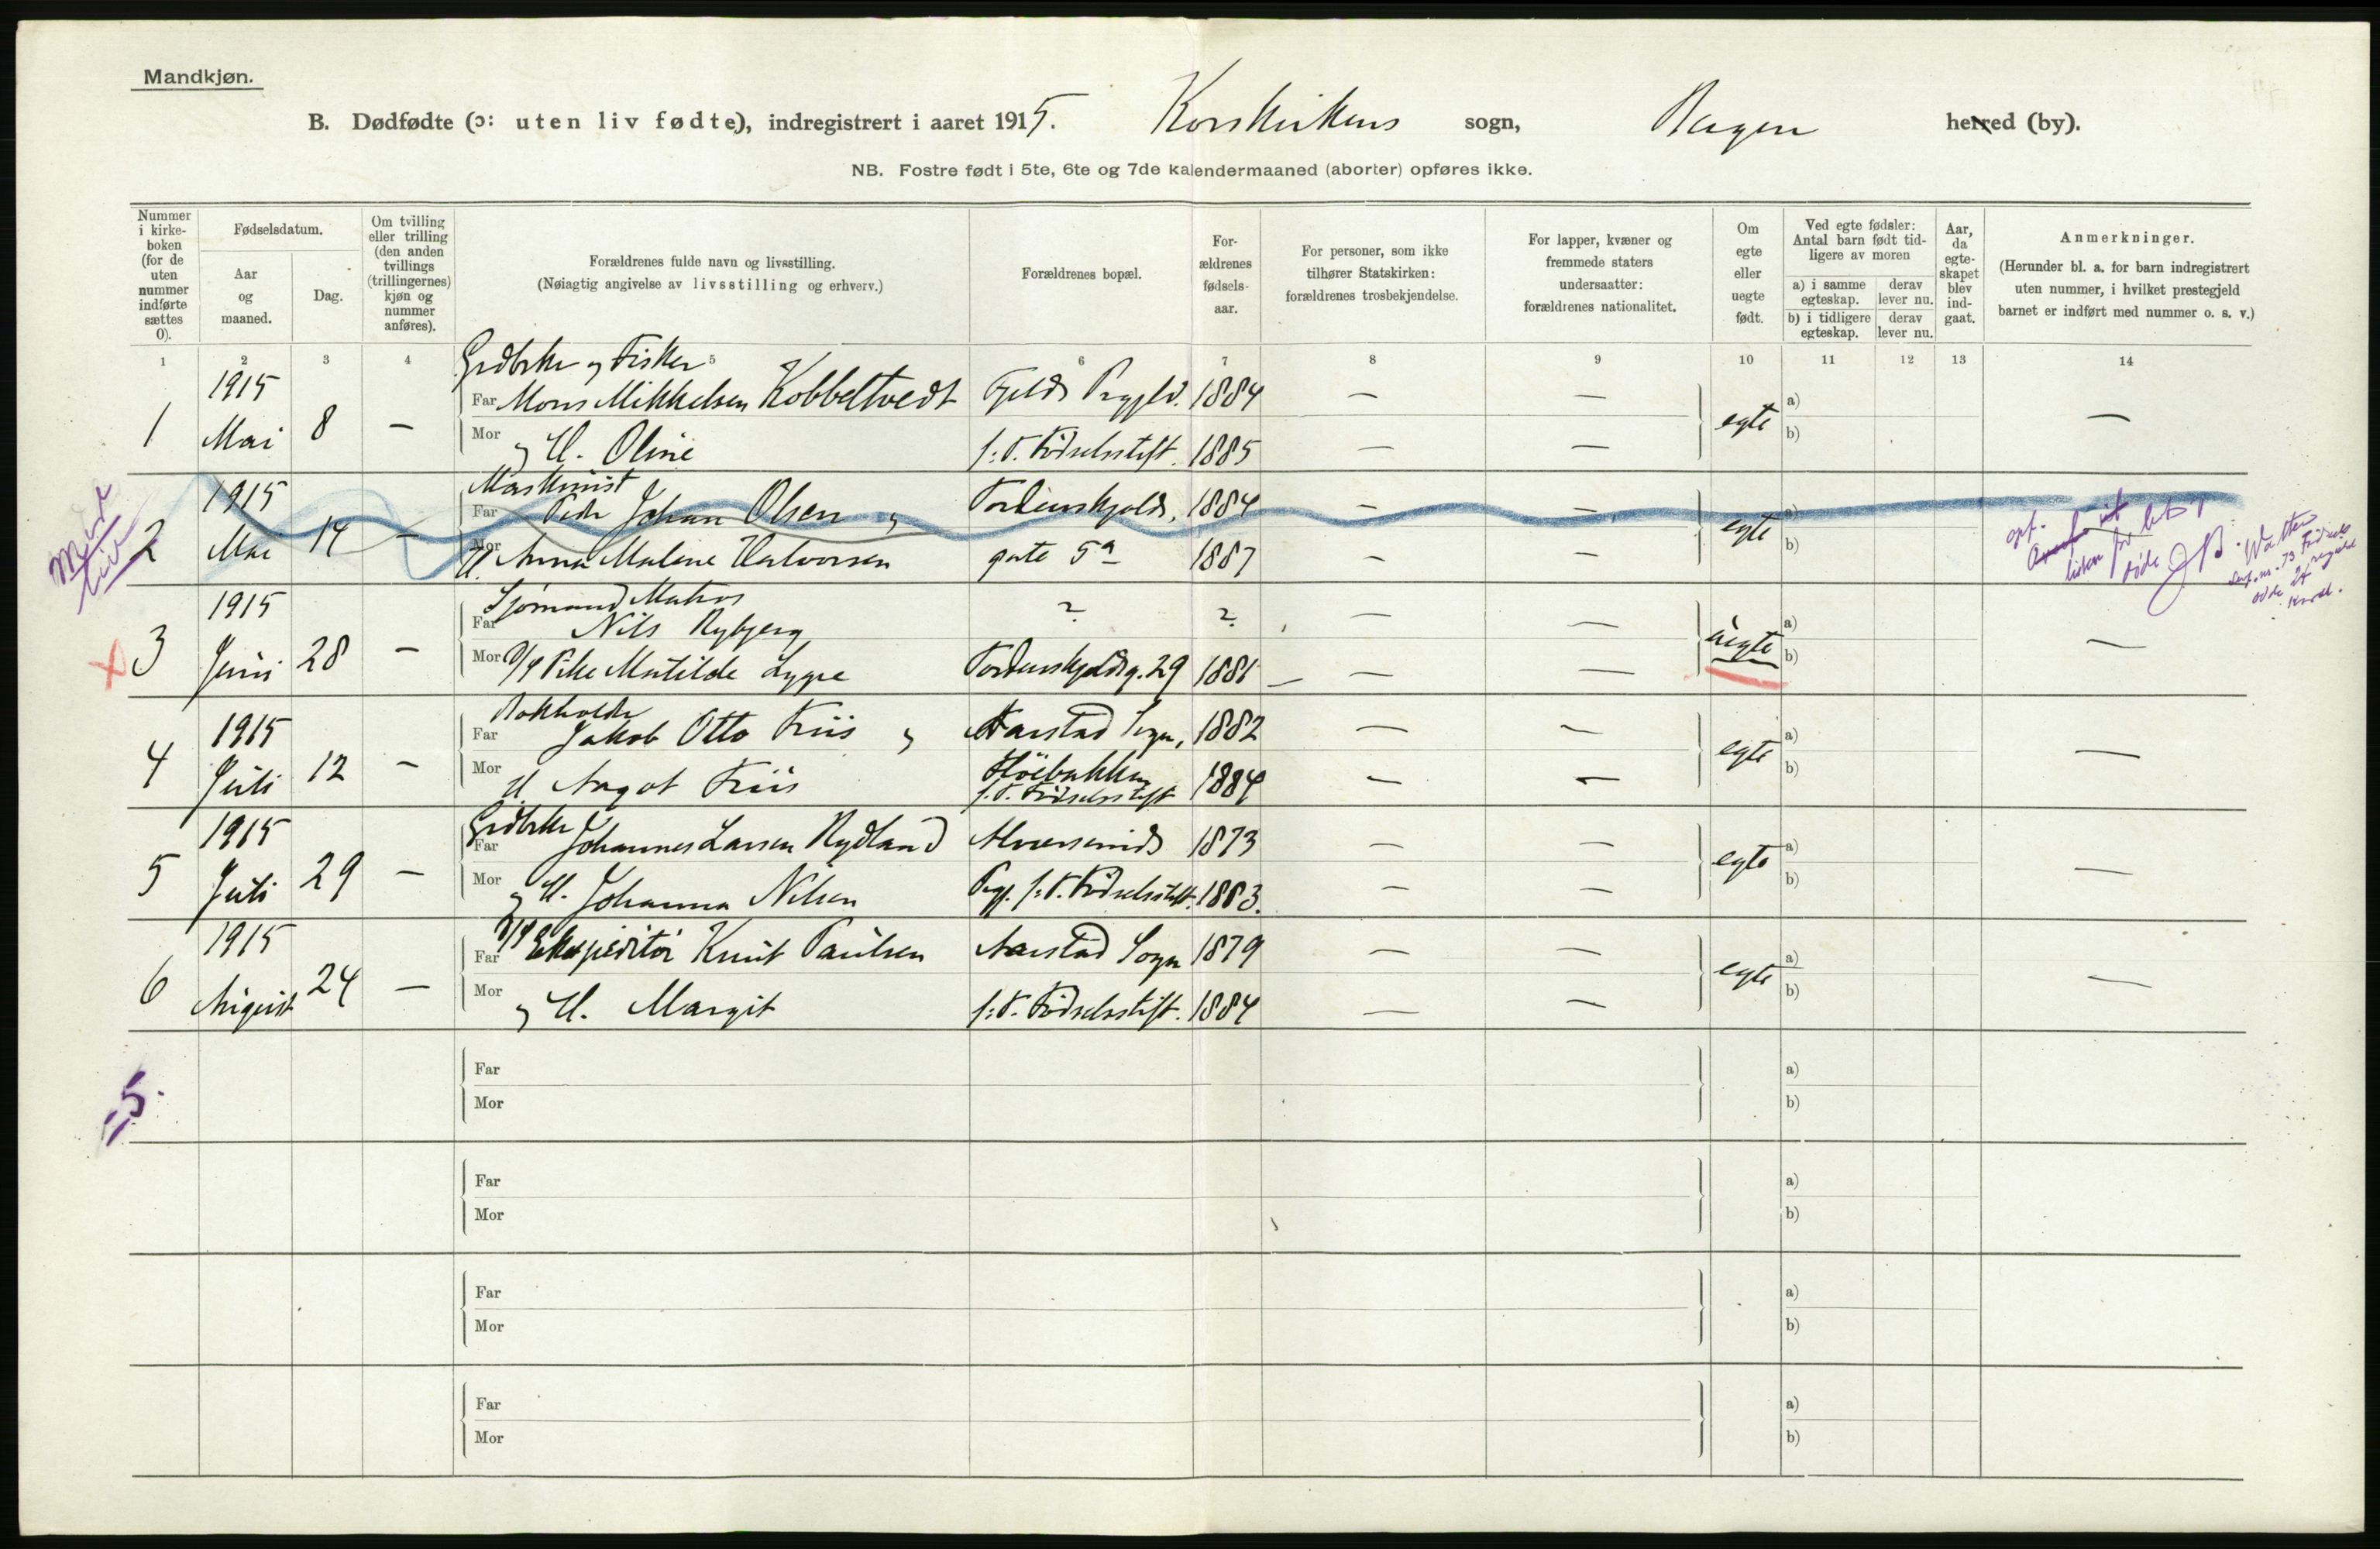 Mandkjøn.
B. Dødfødte (ɔ: uten liv fødte), indregistrert i aaret 1915. Korskirkens sogn, herred (by).
NB. Fostre født i 5te, 6te og 7de kalendermaaned (aborter) opføres ikke.
Nummer i kirkeboken (for de uten nummer indførte sættes 0).
Fødselsdatum.
Aar og maaned.
Dag.
Om tvilling eller trilling (den anden tvillings (trillingernes) kjøn og nummer anføres).
Forældrenes fulde navn og livsstilling.
(Nøiagtig angivelse av livsstilling og erhverv.)
Forældrenes bopæl.
Forældrenes fødselsaar.
For personer, som ikke tilhører Statskirken: forældrenes trosbekjendelse.
For lapper, kvæner og fremmede staters undersaatter: forældrenes nationalitet.
Om egte eller uegte født.
Ved egte fødsler: Antal barn født tidligere av moren
a) i samme egteskap. derav lever nu.
b) i tidligere egteskap. derav lever nu.
Aar, da egteskapet blev indgaat.
Anmerkninger.
(Herunder bl. a. for barn indregistrert uten nummer, i hvilket prestegjeld barnet er indført med nummer o. s. v.)
1 2 3 4 5 6 7 8 9 10 11 12 13 14
Grdbrker og Fisker
1 1915 Mai 8 – Far Mons Mikkelsen Kobbeltvedt Fjelds Prgjld. 1884 — — egte a) —
Mor og H. Oline f: T. Fødselsstift. 1885 — — b)
Med liv
Maskinist
2 1915 Mai 14 – Far Peder Johan Olsen og Tordenskjolds 1884 – – egte a)
Mor H. Anna Malene Halvorsen gate 5a 1887 – – b)
opf. listen for døde
Sjømand Matros
3 1915 Juni 28 – Far Nils Rybjerg ? ? — — uegte a) —
Mor Pike Matilde Lygre Tordenskjoldsg. 29 1881 — — b)
4 1915 Juli 12 – Far Jakob Otto Friis og Aarstad Sogn, 1882 — — egte a) —
Mor H Aagot Friis f. T. Fødselsstift 1884 — — b)
Grdbrker
5 1915 Juli 29 – Far Johannes Larsen Rydland Alversunds 1873 — — egte a) —
Mor og H. Johanna Nilsen Prgj. f: T. Fødselsstift. 1883. — — b)
6 1915 August 24 — Far Ekspeditør Knut Paulsen Aarstad Sogn 1879 — — egte a) —
Mor og H. Margit f: T. Fødselsstift. 1884 — — b)
Far a)
Mor b)
5.
Far a)
Mor b)
Far a)
Mor b)
Far a)
Mor b)